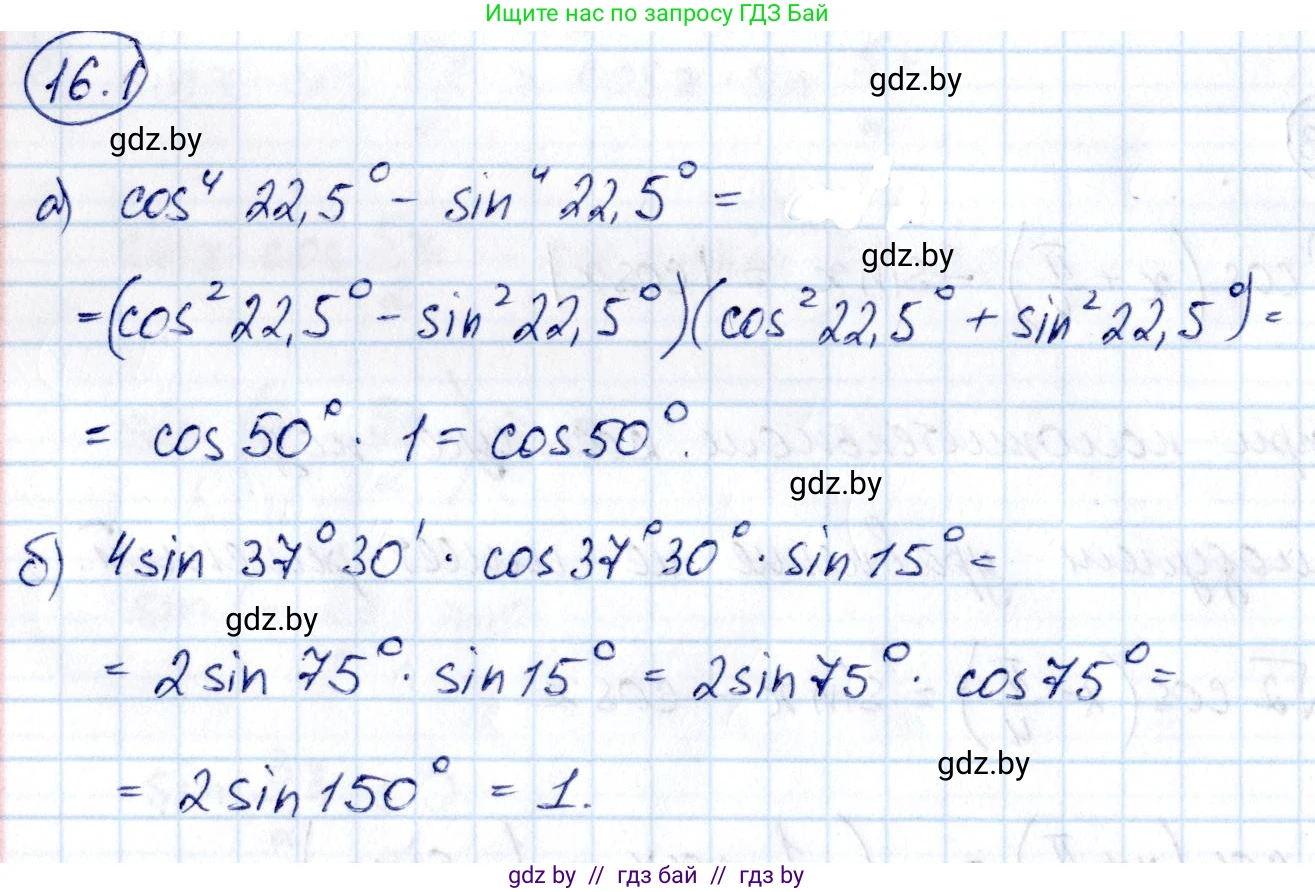 Ищите нас по запросу ГДЗ Бай
16.1
gdz.by
gdz.by
а) cos⁴ 22,5° - sin⁴ 22,5° =
gdz.by
= (cos² 22,5° - sin² 22,5°)(cos² 22,5° + sin² 22,5°) =
= cos 50° · 1 = cos 50°.
gdz.by
б) 4 sin 37°30' · cos 37°30° · sin 15° =
gdz.by
= 2 sin 75° · sin 15° = 2 sin 75° · cos 75° =
gdz.by
= 2 sin 150° = 1.
gdz by // гдз бай // гдз by